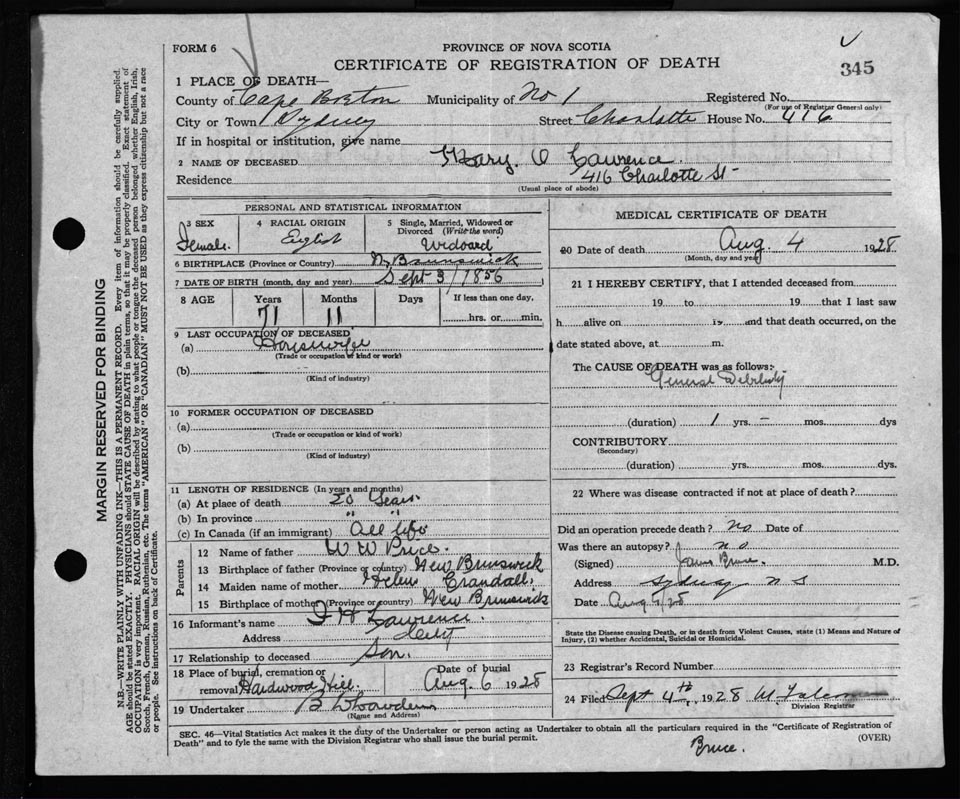 FORM 6
PROVINCE OF NOVA SCOTIA
CERTIFICATE OF REGISTRATION OF DEATH
345
1 PLACE OF DEATH—
County of Cape Breton Municipality of No 1 Registered No.
(For use of Registrar General only)
City or Town Sydney Street Charlotte House No. 416
If in hospital or institution, give name
2 NAME OF DECEASED Mary. O Lawrence.
Residence 416 Charlotte St
(Usual place of abode)
PERSONAL AND STATISTICAL INFORMATION
3 SEX 4 RACIAL ORIGIN 5 Single, Married, Widowed or Divorced (Write the word)
Female. English Widoard
6 BIRTHPLACE (Province or Country) N. Brunswick
7 DATE OF BIRTH (month, day and year) Sept 3/1856
8 AGE Years Months Days If less than one day.
71 11 hrs. or min.
9 LAST OCCUPATION OF DECEASED
(a) Housewife
(Trade or occupation or kind or work)
(b)
(Kind of industry)
10 FORMER OCCUPATION OF DECEASED
(a)
(Trade or occupation or kind of work)
(b)
(Kind of industry)
11 LENGTH OF RESIDENCE (In years and months)
(a) At place of death 20 Years.
(b) In province " "
(c) In Canada (if an immigrant) All life
Parents
12 Name of father W W Bruce.
13 Birthplace of father (Province or country) New Brunswick
14 Maiden name of mother Helen Crandall.
15 Birthplace of mother (Province or country) New Brunswick
16 Informant's name H Lawrence.
Address City
17 Relationship to deceased Son.
18 Place of burial, cremation or removal Hardwood Hill. Date of burial Aug. 6 1928
19 Undertaker B
(Name and Address)
MEDICAL CERTIFICATE OF DEATH
20 Date of death Aug. 4 1928
(Month, day and year)
21 I HEREBY CERTIFY, that I attended deceased from
19 to 19 that I last saw
h alive on is and that death occurred, on the
date stated above, at m.
The CAUSE OF DEATH was as follows:-
General Debility
(duration) 1 yrs. - mos. dys
CONTRIBUTORY
(Secondary)
(duration) yrs. mos. dys.
22 Where was disease contracted if not at place of death?
Did an operation precede death? no Date of
Was there an autopsy? no
(Signed) Bruce. M.D.
Address Sydney N S
Date Aug
State the Disease causing Death, or in death from Violent Causes, state (1) Means and Nature of
Injury, (2) whether Accidental, Suicidal or Homicidal.
23 Registrar's Record Number
24 Filed Sept 4th, 1928
Division Registrar
SEC. 46—Vital Statistics Act makes it the duty of the Undertaker or person acting as Undertaker to obtain all the particulars required in the "Certificate of Registration of
Death" and to fyle the same with the Division Registrar who shall issue the burial permit.
(OVER)
Bruce.
MARGIN RESERVED FOR BINDING
N.B.—WRITE PLAINLY WITH UNFADING INK—THIS IS A PERMANENT RECORD. Every item of information should be carefully supplied.
AGE should be stated EXACTLY. PHYSICIANS should STATE CAUSE OF DEATH in plain terms, so that it may be properly classified. Exact statement of
OCCUPATION is very important. RACIAL ORIGIN will be described by stating to what people or tongue the deceased person belonged whether English, Irish,
Scotch, French, German, Russian, Ruthenian, etc. The terms "AMERICAN" OR "CANADIAN" MUST NOT BE USED as they express citizenship but not a race
or people. See instructions on back of Certificate.